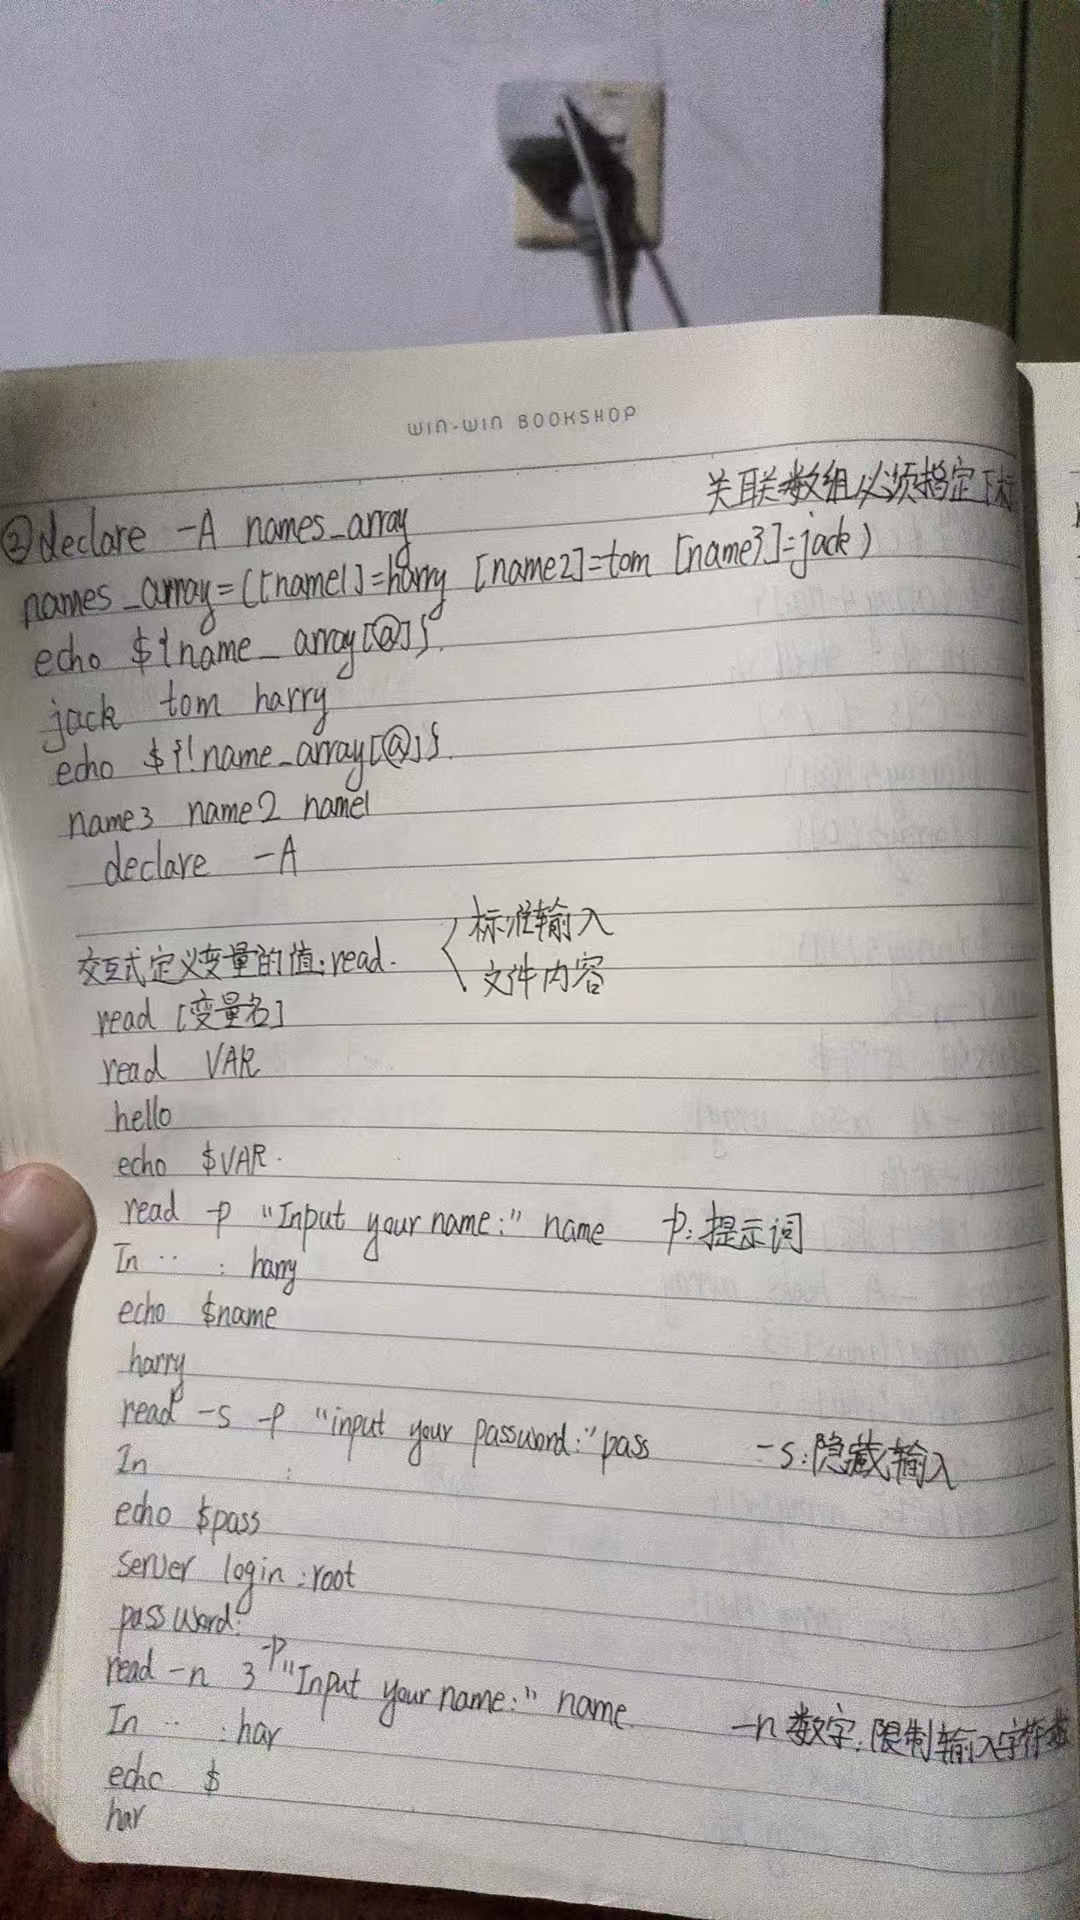 WIN-WIN BOOKSHOP
关联数组必须指定下标
②declare -A names_array
names_array=([name1]=harry [name2]=tom [name3]=jack)
echo ${name_array[@]}.
jack tom harry
echo ${!name_array[@]}.
name3 name2 name1
declare -A
交互式定义变量的值:read.
标准输入
文件内容
read [变量名]
read VAR
hello
echo $VAR.
read -p "Input your name:" name p:提示词
In ·· : harry
echo $name
harry
read -s -p "input your password:" pass -s:隐藏输入
In :
echo $pass
server login:root
password:
read -n 3 -p "Input your name:" name. -n 数字:限制输入字符数
In ·· :har
echo $
har